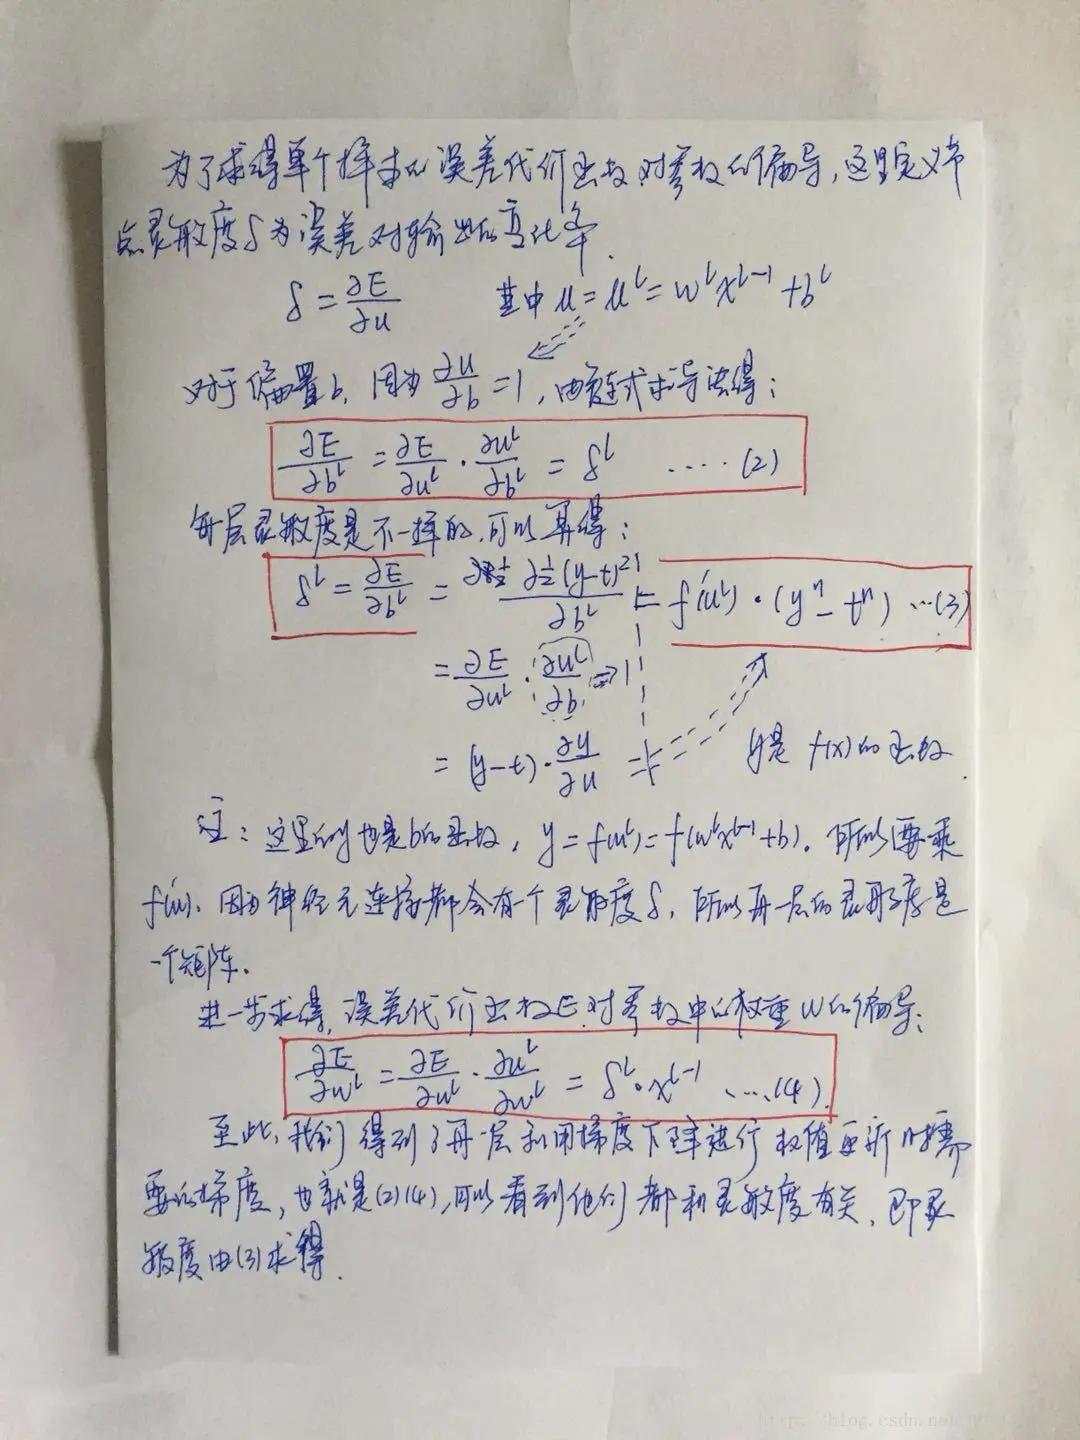 为了求得单个样本的误差代价函数对参数的偏导,这里定义节
点灵敏度δ为误差对输出的变化率.
δ = ∂E/∂u 其中 u = u^L = w^L x^{L-1} + b^L
对于偏置b, 因为 ∂u/∂b = 1, 由链式求导法得:
∂E/∂b^L = ∂E/∂u^L · ∂u^L/∂b^L = δ^L ····· (2)
每层灵敏度是不一样的,可以算得:
δ^L = ∂E/∂b^L = ∂½(y-t)²/∂b^L = f'(u^L) · (y^n - t^n) ···(3)
= ∂E/∂u^L · ∂u^L/∂b ⇒ 1
= (y-t) · ∂y/∂u = y是 f(x)的函数.
注: 这里的y也是b的函数, y = f(u^L) = f(w^L x^{L-1} + b). 所以要乘
f'(u). 因为神经元连接都会有一个灵敏度δ, 所以每一层的灵敏度是
一个矩阵.
进一步求得,误差代价函数E对参数中的权重W的偏导:
∂E/∂w^L = ∂E/∂u^L · ∂u^L/∂w^L = δ^L · x^{L-1} ····(4)
至此, 我们得到了每一层利用梯度下降进行权值更新时需
要的梯度, 也就是(2)(4),可以看到他们都和灵敏度有关, 即灵
敏度由(3)求得.